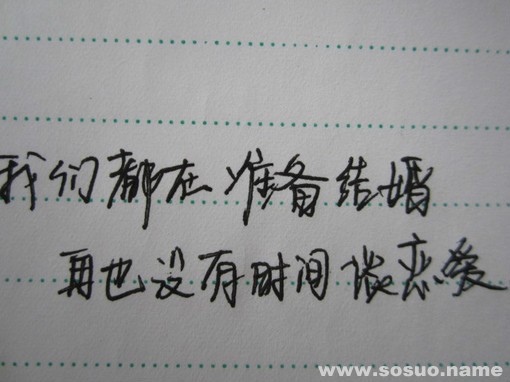 我们都在准备结婚
再也没有时间谈恋爱
www.sosuo.name